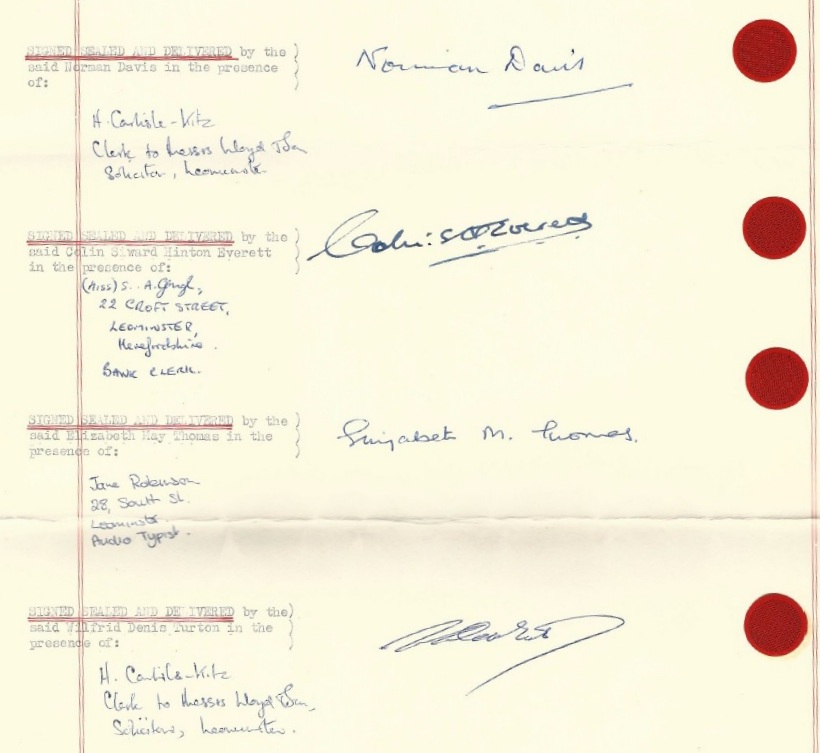 SIGNED SEALED AND DELIVERED by the )
said Norman Davis in the presence )
of: )
Norman Davis
H. Carlisle-Kitz
Clerk to Messrs Lloyd & Son
Solicitors, Leominster.
SIGNED SEALED AND DELIVERED by the )
said Colin Siward Hinton Everett )
in the presence of: )
(Miss) S. A. Gough,
22 CROFT STREET,
LEOMINSTER,
Herefordshire.
BANK CLERK.
SIGNED SEALED AND DELIVERED by the )
said Elizabeth May Thomas in the )
presence of: )
Elizabeth M. Thomas.
Jane Robinson
28, South St.
Leominster.
Audio Typist.
SIGNED SEALED AND DELIVERED by the)
said Wilfrid Denis Turton in the )
presence of: )
H. Carlisle-Kitz
Clerk to Messrs Lloyd & Son,
Solicitors, Leominster.